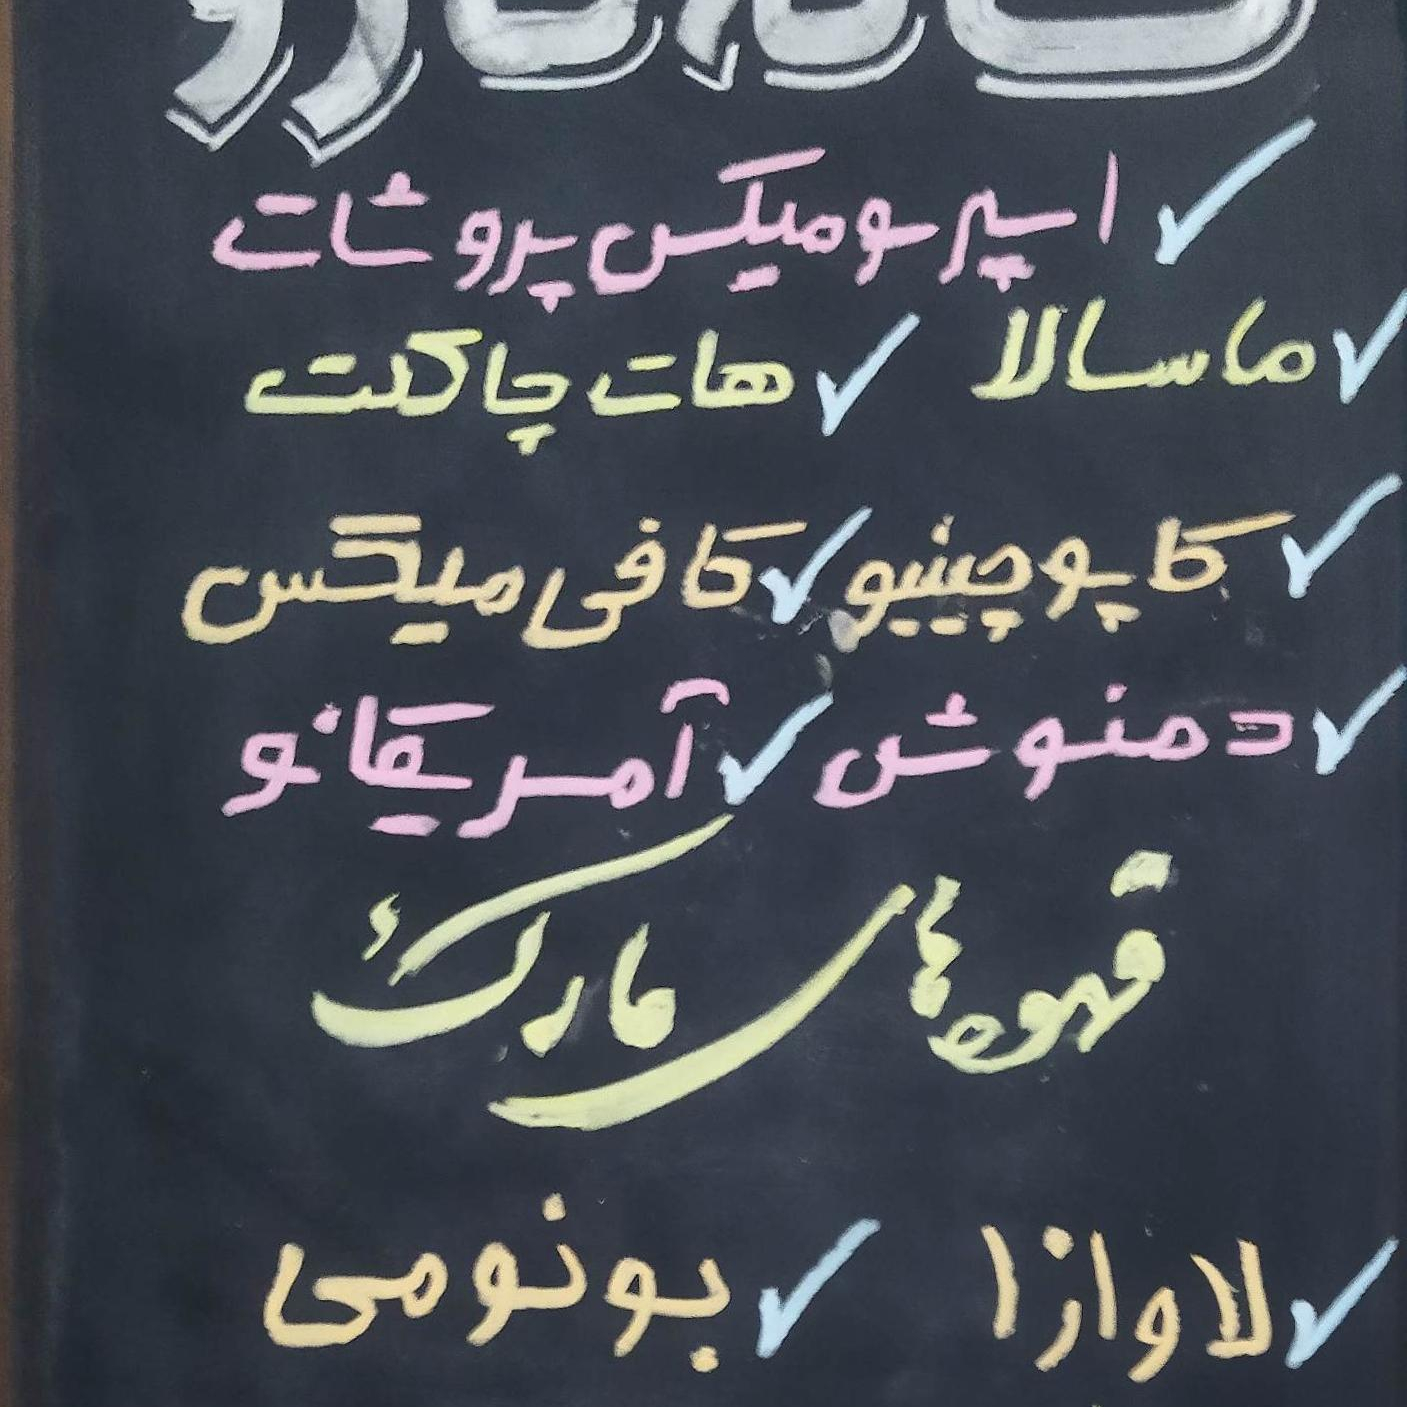 اسپرسو میکس پروشات
ماسالا هات چاکلت
کاپوچینیو کافی میکس
دمنوش آمریقانو
قهوه های مارک
لاوازا بونومی